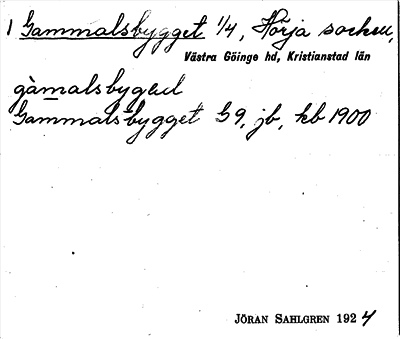 1 Gammalsbygget 1/4, Hörja socken,
Västra Göinge hd, Kristianstad län
Gammalsbygget G9, jb, kb 1900
JÖRAN SAHLGREN 1924